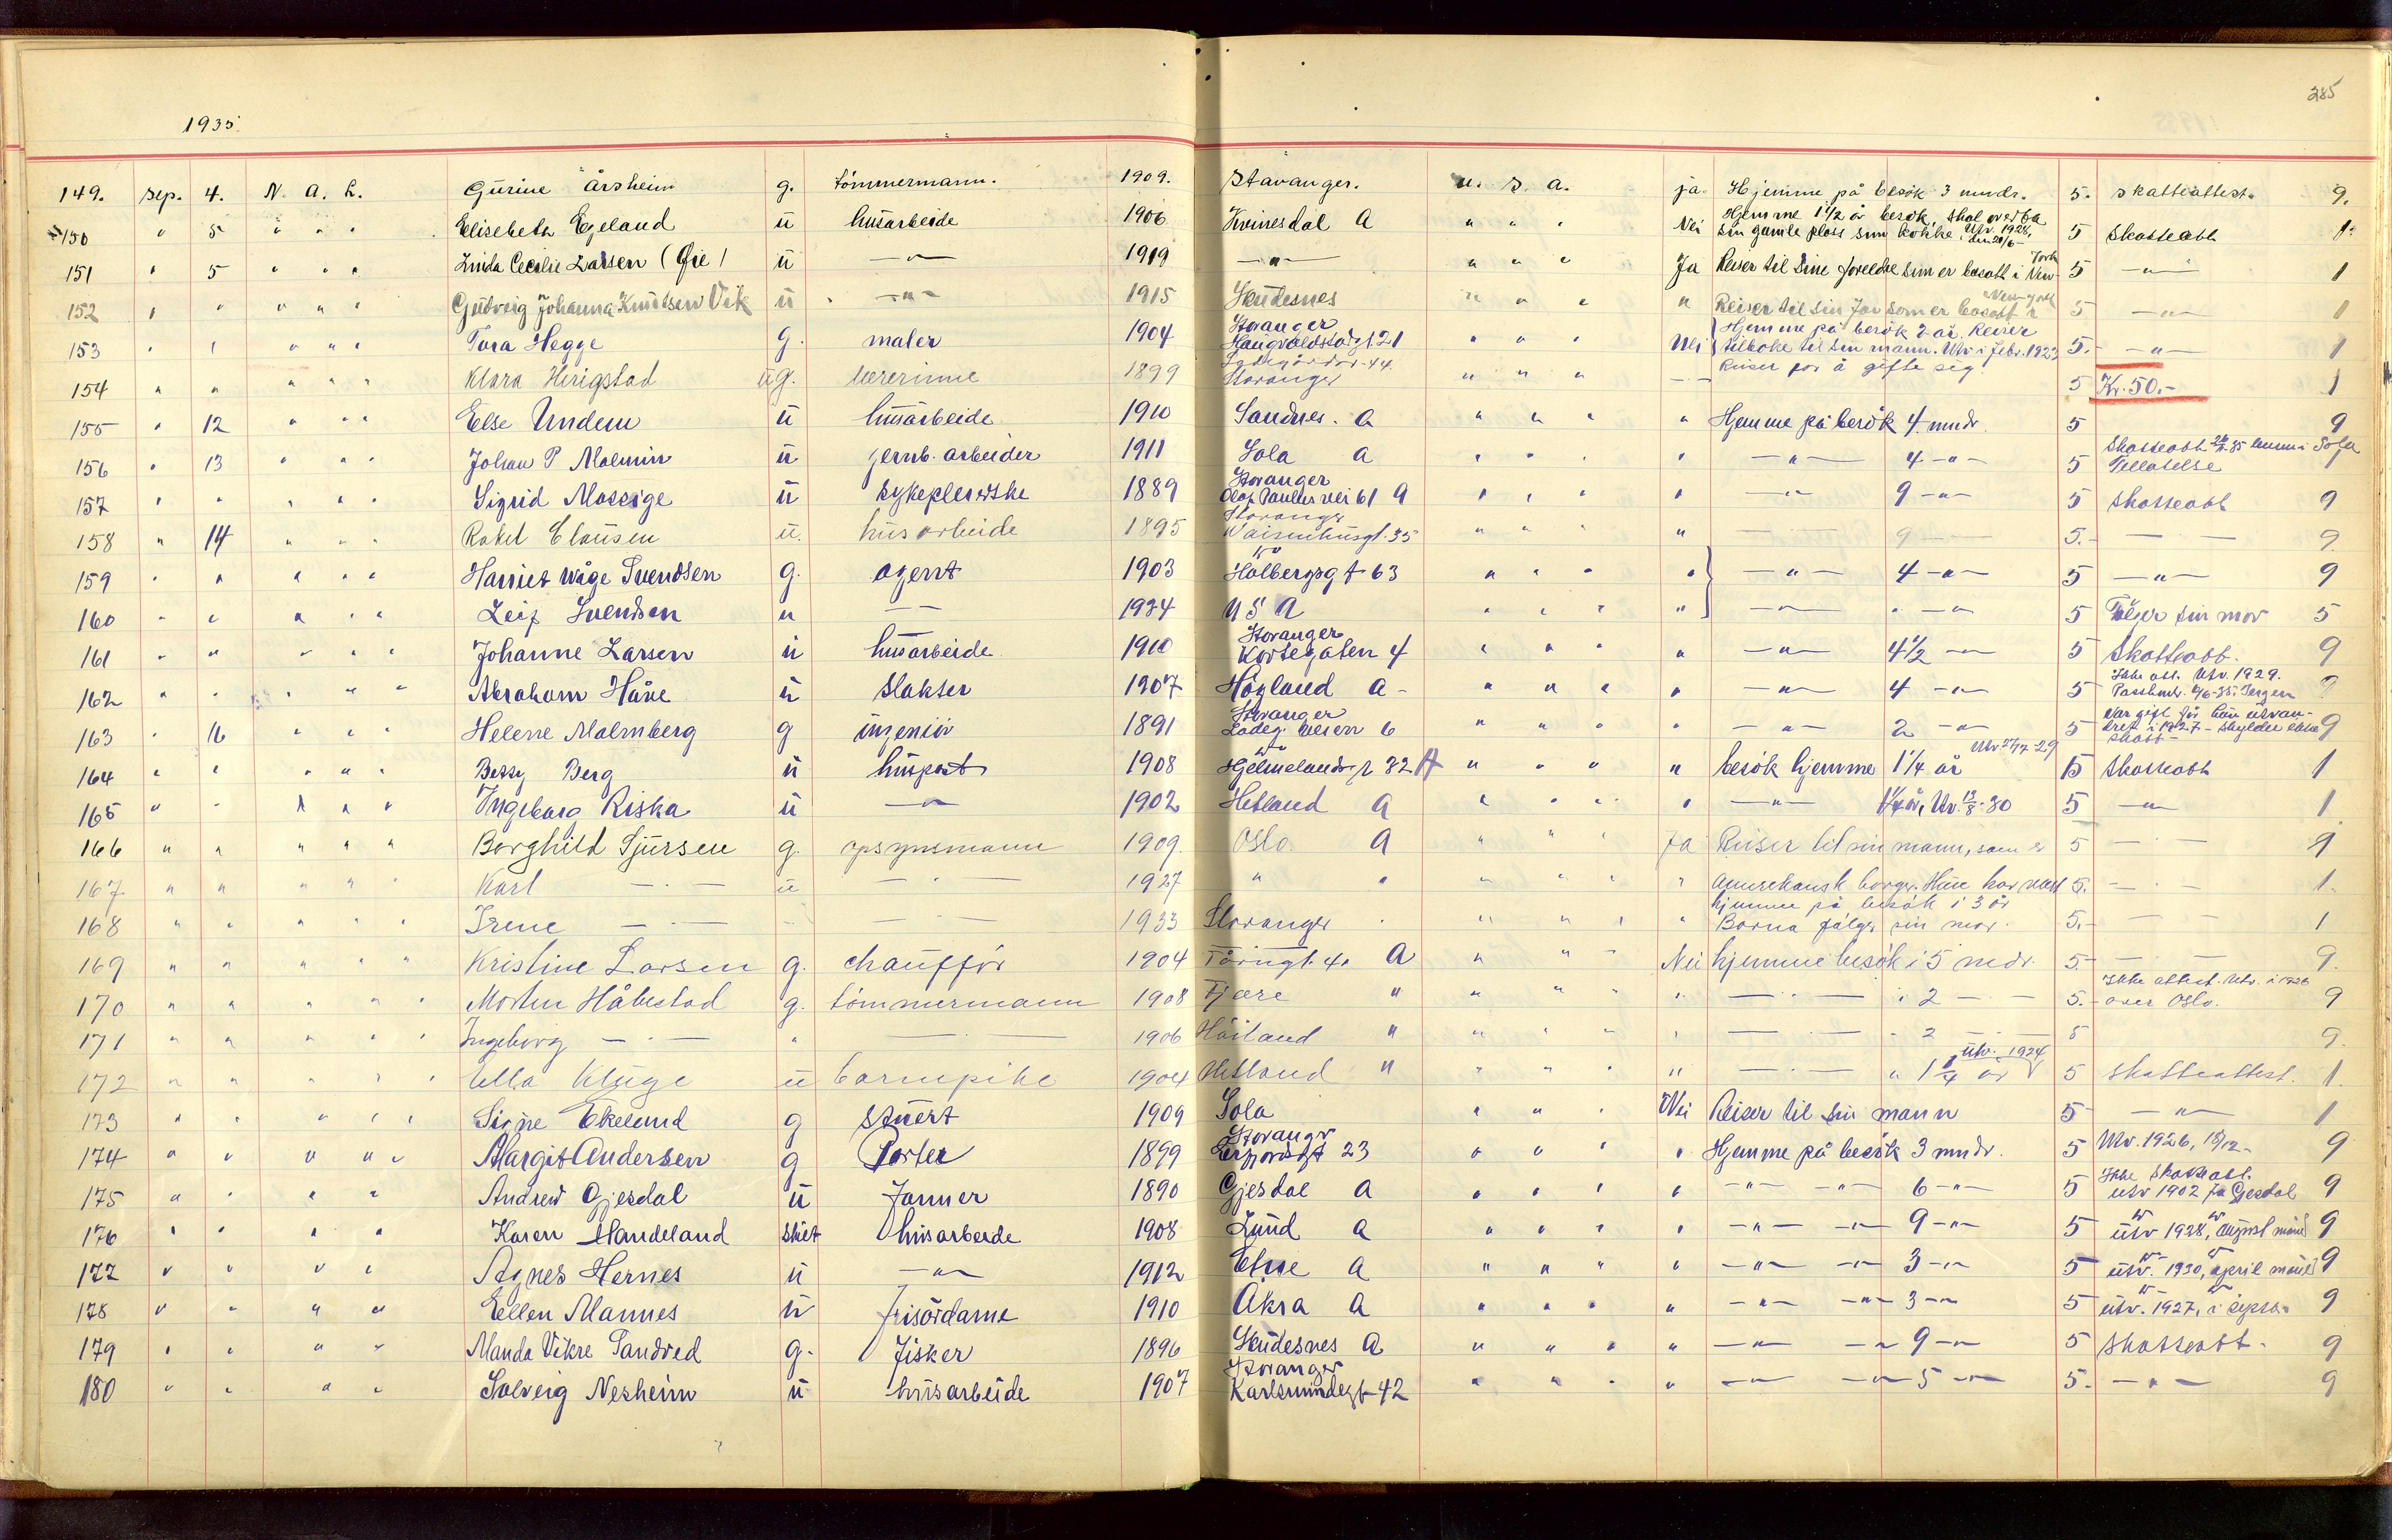 285
1935.
149. Sep. 4. N. A. L. Gurine Årsheim g. tömmermann. 1909. Stavanger. U. S. A. ja Hjemme på besök 3 mndr. 5. skatteattest. 9.
150 " 5 " " " Elisebeth Egeland ü husarbeide 1906 Kvinesdal A " " " Nei Hjemme 1 1/2 år besök, skal overta sin gamle plass som kokke. Utv. 1928, den 20/6 5 Skatteatt 1.
151 " 5 " " " Linda Cecilie Larsen (Öie) ü —"— 1919 —"— " " " Ja Reiser til sine foreldre som er bosatt i New York 5 —"— 1
152 " " " " " Gudveig Johanna Knutsen Vik ü —"— 1915 Skudesnes " " " " Reiser til sin far som er bosatt i New-York 5 —"— 1
153 " " " " " Tora Hegge g. maler 1904 Stavanger Haugvaldstadgt 21 " " " Nei Hjemme på besök 2 år. Reiser tilbake til sin mann. Utv. i febr. 1923 5.- —"— 1
154 " " " " " Klara Herigstad ug. lærerinne 1899 Stavanger 44. " " " — Reiser for å gifte sig 5 Kr. 50.- 1
155 " 12 " " " Else Undem ü husarbeide 1910 Sandnes. A " " " " Hjemme på besök 4 mndr. 5 9
156 " 13 " " " Johan P Malmin ü jernb. arbeider 1911 Sola A " " " " —"— 4 —"— 5 Skatteatt Sola Tillatelse 9
157 " " " " " Sigrid Mossige ü sykepleierske 1889 Stavanger Olaf Paulus vei 61 A " " " " —"— 9 —"— 5 Skatteatt 9
158 " 14 " " " Rakel Clausen ü. husarbeide 1895 Stavanger Vaisenhusgt. 35 " " " " — 9 — 5.- — — 9
159 " " " " " Harriet Wåge Svendsen g. agent 1903 Holbergsgt 63 " " " " —"— 4 —"— 5 —"— 9
160 " " " " " Leif Svendsen u — 1934 U S A " " " " —"— " —"— 5 Fölger sin mor 5
161 " " " " " Johanne Larsen ü husarbeide 1910 Stavanger Kortegaten 4 " " " " —"— 4 1/2 —"— 5 Skatteatt. 9
162 " " " " " Abraham Håve ü Slakter 1907 Högland A - " " " " —"— 4 —"— 5 Ikke att. Utv. 1929. 9
163 " 16 " " " Helene Malmberg g ingeniör 1891 Stavanger Ladeg. veien 6 " " " " —"— 2 —"— 5 Var gift för hun utvandret i 1927 - skylder ikke skatt - 9
164 " " " " " Betsy Berg ü huspost 1908 Hjelmelandsgt 32 A " " " " besök hjemme 1 1/4 år Utv 27/7 29 5 Skatteatt 1
165 " " " " " Ingeborg Riska ü —"— 1902 Hetland A " " " " —"— 1 1/4 år, Utv. 13/8-30 5 —"— 1
166 " " " " " Borghild Sjursen g. opsynsmann 1909. Oslo. A " " " Ja Reiser til sin mann, som er 5 — — 9
167 " " " " " Karl —"— ü —"— 1927 " " " " " " Amerikansk borger. Hun har vært 5. —"— 1.
168 " " " " " Irene —"— — —"— 1933 Stavanger " " " " " hjemme på besök i 3 år Barna fölger sin mor. 5.- — — 1
169 " " " " " Kristine Larsen g. chaufför 1904 Tårngt. 4. A " " " Nei hjemme besök i 5 mdr. 5.- — — 9.
170 " " " " " Morten Håbestad g. tömmermann 1908 Fjære " " " " " —"— i 2 —"— 5.- Ikke attest. Utv. i 1926 over Oslo. 9
171 " " " " " Ingeborg —"— " —"— 1906 Höiland " " " " " —"— " 2 —"— 5 9.
172 " " " " " Ella Kluge ü barnepike 1904 Hetland " " " " " —"— " 1 1/4 år utv. 1924 5 skatteattest. 1.
173 " " " " " Signe Ekelund g stuert 1909 Sola " " " Nei Reiser til sin mann 5 —"— 1
174 " " " " " Margit Andersen g Porter 1899 Stavanger 23 " " " " Hjemme på besök 3 mndr. 5 Utv. 1926, 18/12- 9
175 " " " " Andrew Gjesdal ü farmer 1890 Gjesdal A " " " " —"— —"— 6 —"— 5 Ikke Skatteatt. utv 1902 fra Gjesdal 9
176 " " " " Karen Handeland skilt husarbeide 1908 Lund A " " " " —"— —"— 9 —"— 5 utv 1928, august måned 9
177 " " " " Agnes Hernes ü —"— 1912 Etne A " " " " —"— —"— 3 —"— 5 utv. 1930, april måned 9
178 " " " " Ellen Mannes ü frisördame 1910 Åkra A " " " " —"— —"— 3 —"— 5 utv. 1927, i septbr. 9
179 " " " " Manda Vikre Sandved g. fisker 1896 Skudesnes A " " " " —"— —"— 9 —"— 5 Skatteatt. 9
180 " " " " Solveig Nesheim ü husarbeide 1907 Stavanger Karlsmindegt 42 " " " " —"— —"— 5 —"— 5.- —"— 9